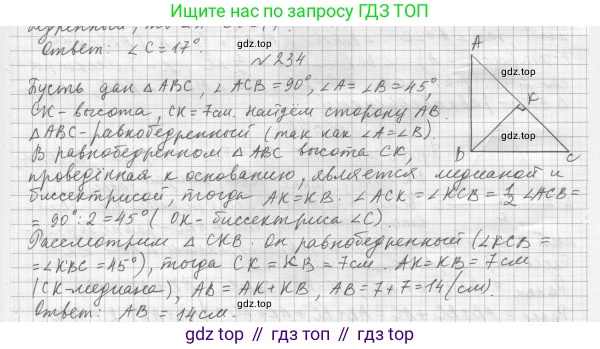 Ищите нас по запросу ГДЗ ТОП
Ответ: ∠C=17°.
№ 234
Пусть дан △ABC, ∠ACB=90°, ∠A=∠B=45°,
CK-высота, CK=7см. Найдём сторону AB.
△ABC-равнобедренный (так как ∠A=∠B).
В равнобедренном △ABC высота CK,
проведённая к основанию, является медианой и
биссектрисой, тогда AK=KB. ∠ACK=∠KCB=1/2 ∠ACB=
=90°:2=45° (CK-биссектриса ∠C).
Рассмотрим △CKB. Он равнобедренный (∠KCB=
=∠KBC=45°), тогда CK=KB=7см. AK=KB=7см
(CK-медиана), AB=AK+KB, AB=7+7=14(см).
Ответ: AB=14см.
A
K
B
C
gdz.top
gdz.top
gdz.top
gdz.top
gdz.top
gdz.top
gdz.top // гдз.топ // gdz.top // гдз.топ // gdz.top